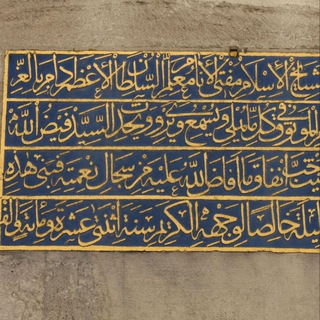 شيخ الاسلام مفتي الانام معلم السلطان الاعظم دام بالعز
الموثوق في كل ما يملى ويسمع ويروى السيد فيض الله
انفاق ما افاض الله عليه من سجال نعمته فبنى هذه
ليلة خالصا لوجهه الكريم سنة اثنتى عشرة ومائة والف